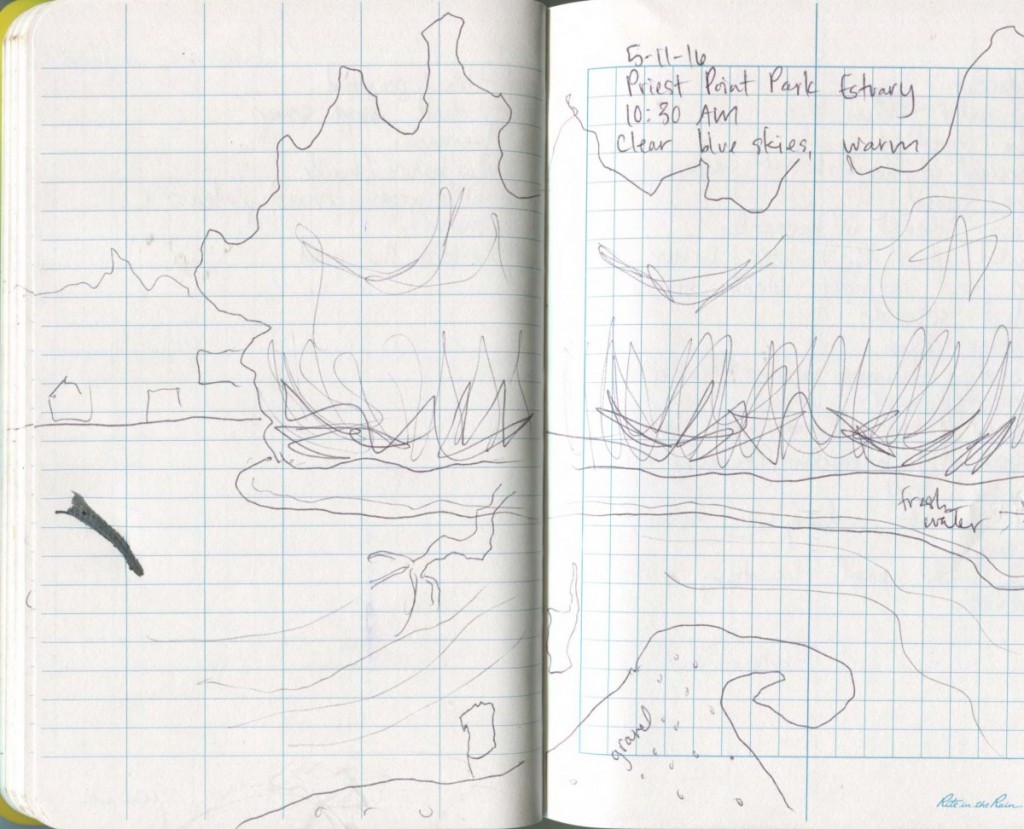 5-11-16
Priest Point Park Estuary
10:30 AM
Clear blue skies, warm
fresh
water
gravel
Rite in the Rain